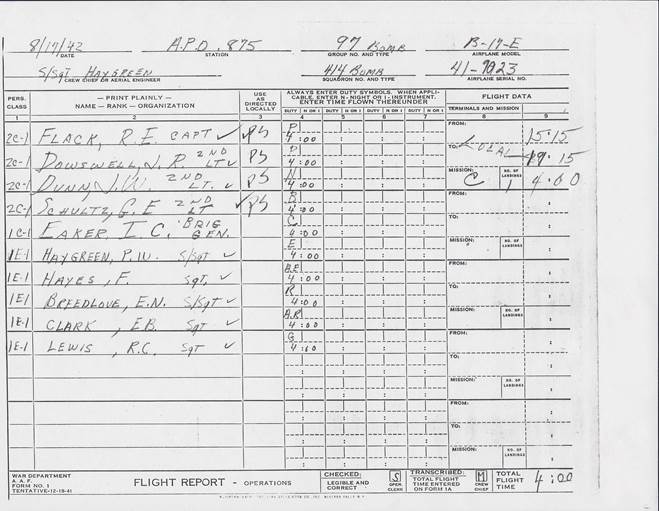 8/17/42 A.P.O. 875 97 BOMB B-17-E
DATE STATION GROUP NO. AND TYPE AIRPLANE MODEL
S/SGT HAYGREEN 414 BOMB 41-
CREW CHIEF OR AERIAL ENGINEER SQUADRON NO. AND TYPE AIRPLANE SERIAL NO.
PERS. CLASS — PRINT PLAINLY — NAME — RANK — ORGANIZATION USE AS DIRECTED LOCALLY ALWAYS ENTER DUTY SYMBOLS. WHEN APPLICABLE, ENTER N-NIGHT OR I-INSTRUMENT. ENTER TIME FLOWN THEREUNDER FLIGHT DATA
DUTY N OR I DUTY N OR I DUTY N OR I DUTY N OR I TERMINALS AND MISSION
1 2 3 4 5 6 7 8 9
2C-1 FLACK, R.E. CAPT ✓ PS P 4:00 FROM: 15:15
2C-1 DOWSWELL, J. R. 2ND LT ✓ PS 4:00 TO: LOCAL 19:15
2C-1 DUNN, J.W. 2ND LT. ✓ PS N 4:00 MISSION: C NO. OF LANDINGS 1 4:00
2C-1 SCHULTZ, G.E 2ND LT ✓ PS B 4:00 FROM:
1C-1 EAKER, I.C. BRIG GEN. C 4:00 TO:
1E-1 HAYGREEN, P.W. S/SGT ✓ E 4:00 MISSION: NO. OF LANDINGS
1E-1 HAYES, F. SGT, ✓ 4:00 FROM:
1E1 BREEDLOVE, E.N. S/SGT ✓ R 4:00 TO:
1E-1 CLARK, E.B. SGT ✓ A.R 4:00 MISSION: NO. OF LANDINGS
1E-1 LEWIS, R.C. SGT ✓ G 4:00 FROM:
TO:
MISSION: NO. OF LANDINGS
FROM:
TO:
MISSION: NO. OF LANDINGS
WAR DEPARTMENT
A. A. F.
FORM NO. 1
TENTATIVE-12-18-41
FLIGHT REPORT - OPERATIONS
CHECKED: LEGIBLE AND CORRECT S OPER. CLERK
TRANSCRIBED: TOTAL FLIGHT TIME ENTERED ON FORM 1A M CREW CHIEF
TOTAL FLIGHT TIME 4:00